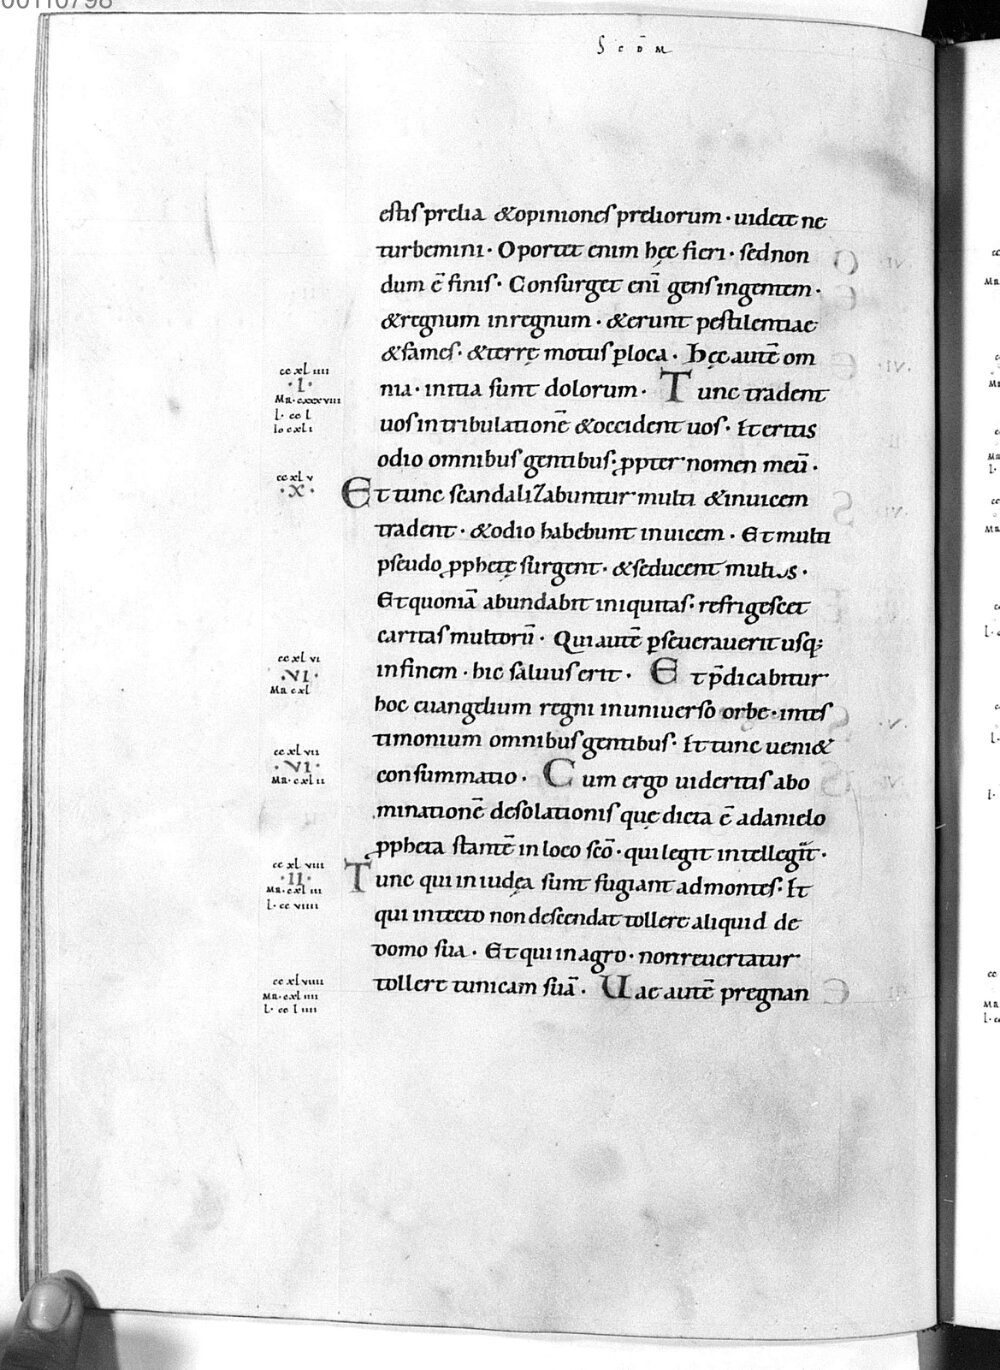 00110798
S c d̄ M
estis prelia &opiniones preliorum · uidete ne
turbemini · Oportet enim hęc fieri · sed non
dum ē finis · Consurget enī gens ingentem ·
&regnum in regnum · &erunt pestilentiae
&fames · &terrę motus ꝑ loca · hęc autē om
cc xl iiii
· I ·
Mr · cxxxviii
l · cc l
Io cxli
nia · initia sunt dolorum · Tunc tradent
uos in tribulationē &occident uos · Et eritis
odio omnibus gentibus ꝓpter nomen meū ·
cc xl v
· X ·
Et tunc scandaliZabuntur multi &inuicem
tradent · &odio habebunt inuicem · Et multi
pseudo ꝓphetę surgent · &seducent multos ·
Et quoniā abundabit iniquitas · refrigescet
caritas multorū · Qui autē ꝑseuerauerit usq;
cc xl vi
· VI ·
Mr cxl
infinem · hic saluus erit · Et p̄dicabitur
hoc euangelium regni in uniuerso orbe · in tes
timonium omnibus gentibus · Et tunc ueni&
cc xl vii
· VI ·
Mr · cxl ii
consummatio · Cum ergo uideritis abo
minationē desolationis quę dicta ē a danielo
ꝓpheta stantē in loco scō · qui legit intellegit ·
cc xl viii
· II ·
Mr · cxl iii
l · cc viiii
Tunc qui in iudęa sunt fugiant ad montes · Et
qui in tecto non descendat tollere aliquid de
domo sua · Et qui in agro · non reuertatur
cc xl viiii
Mr · cxl iiii
l · cc l iiii
tollere tunicam suā · Uae autē pregnan